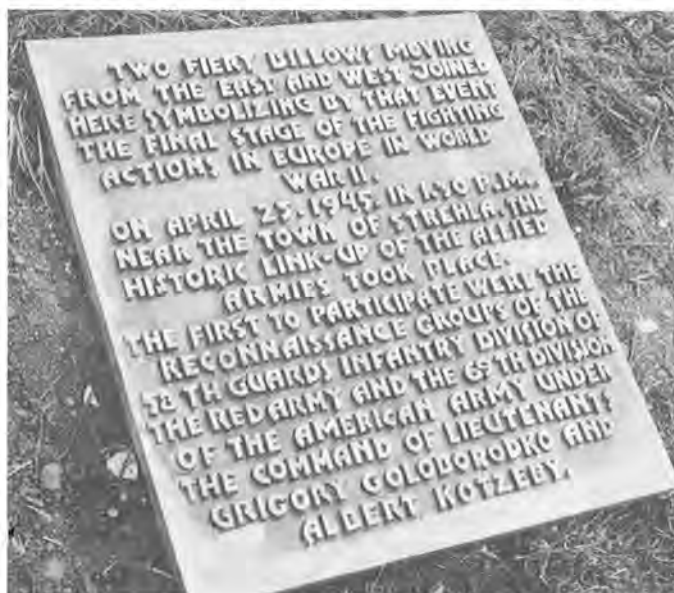 TWO FIERY BILLOWS MOVING
FROM THE EAST AND WEST JOINED
HERE SYMBOLIZING BY THAT EVENT
THE FINAL STAGE OF THE FIGHTING
ACTIONS IN EUROPE IN WORLD
WAR II.
ON APRIL 25.1945. IN 1.30 P.M.,
NEAR THE TOWN OF STREHLA. THE
HISTORIC LINK-UP OF THE ALLIED
ARMIES TOOK PLACE.
THE FIRST TO PARTICIPATE WERE THE
RECONNAISSANCE GROUPS OF THE
58 TH GUARDS INFANTRY DIVISION OF
THE RED ARMY AND THE 69 TH DIVISION
OF THE AMERICAN ARMY UNDER
THE COMMAND OF LIEUTENANTS
GRIGORY GOLOBORODKO AND
ALBERT KOTZEBY.